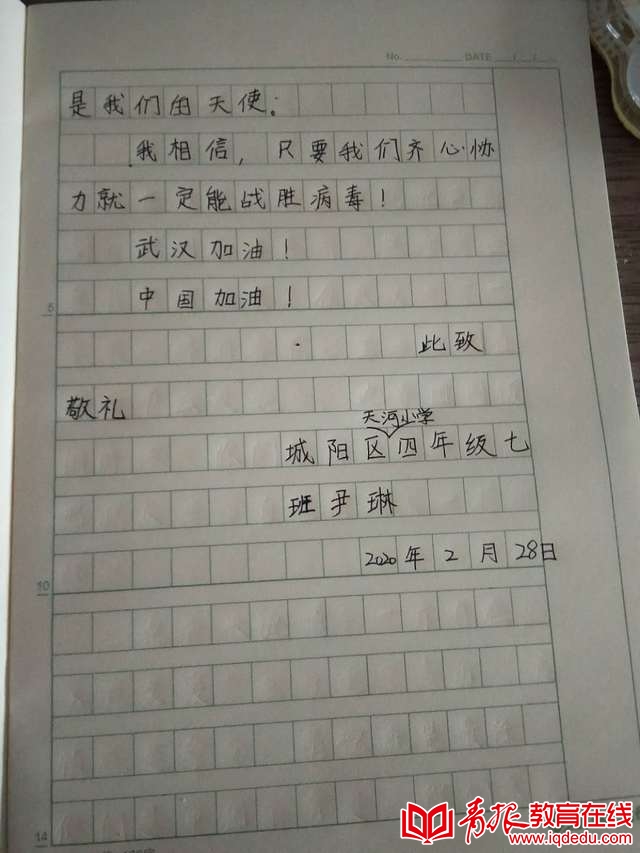 No. DATE / /
是我们的天使。
我相信，只要我们齐心协
力就一定能战胜病毒！
武汉加油！
5
中国加油！
此致
敬礼
天河小学
城阳区四年级七
班尹琳
2020年2月28日
10
14
青报教育在线
www.iqdedu.com